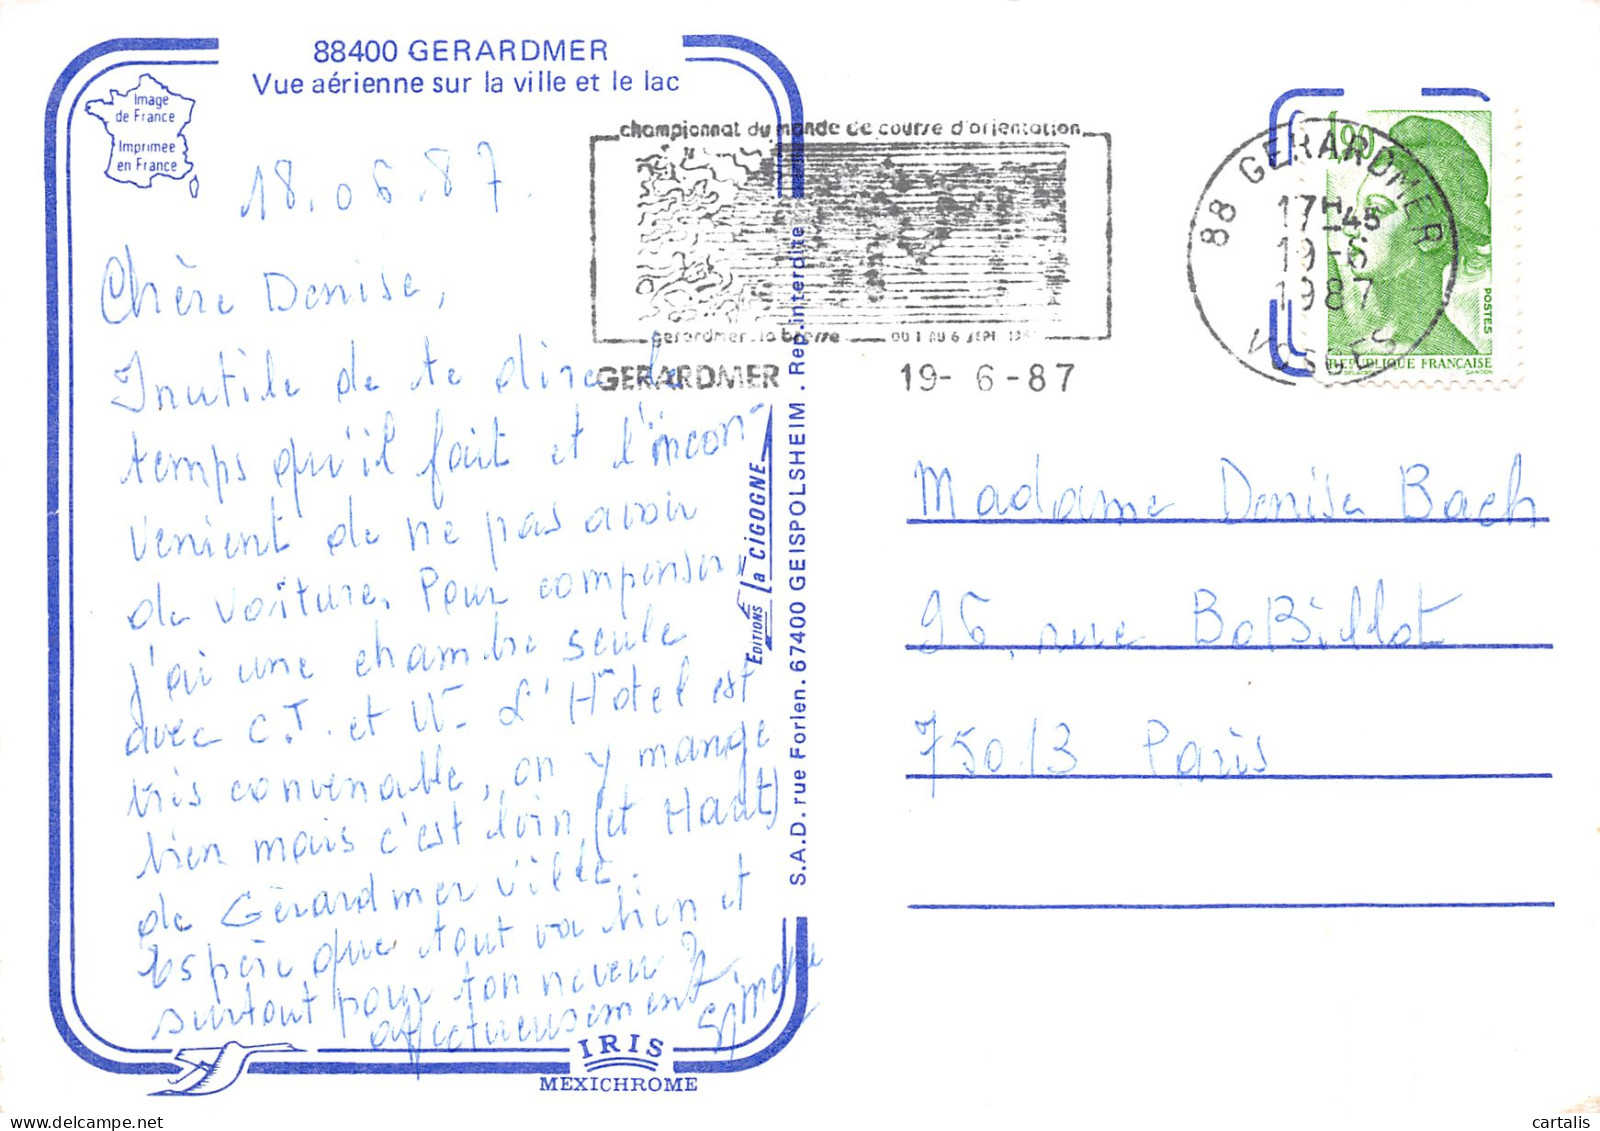 88400 GERARDMER
Vue aérienne sur la ville et le lac
Image
de France
Imprimée
en France
18.06.87.
Chère Denise,
Inutile de te dire le
temps qu'il fait et l'incon-
venient de ne pas avoir
de voiture. Pour compenser,
j'ai une chambre seule
avec C.T. et W- L'Hôtel est
très convenable, on y mange
bien mais c'est loin (et Haut)
de Gérardmer ville.
Espère que tout va bien et
surtout pour ton neveu ?
affectueusement
IRIS
MEXICHROME
EDITIONS la CIGOGNE
S.A.D. rue Forlen. 67400 GEISPOLSHEIM. Rep. interdite
championnat du monde de course d'orientation
gerardmer-la bresse DU 1 AU 6 SEPT 198
GERARDMER 19- 6 -87
88 GERARDMER
17H45
19-6
1987
VOSGES
1,90
POSTES
REPUBLIQUE FRANÇAISE
DELACROIX GANDON
Madame Denise Bach
96, rue BoBillot
75013 Paris
cartalis
www.delcampe.net